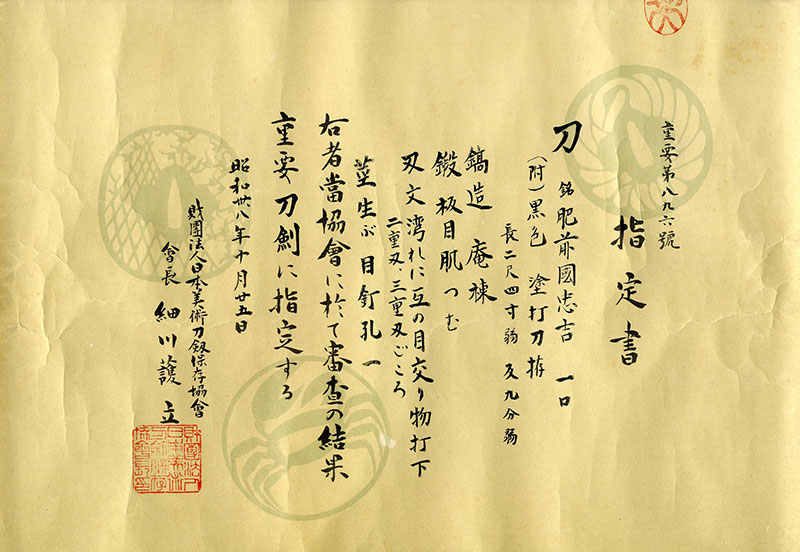 重要第八九六號
指定書
刀 銘 肥前國忠吉 一口
(附)黒色塗打刀拵
長二尺四寸弱 反九分弱
鎬造 庵棟
鍛 板目肌つむ
刃文 湾れに互の目交り物打下
二重刃、三重刃ごころ
莖生ぶ 目釘孔一
右者當協會に於て審査の結果
重要刀劍に指定する
昭和卅八年十月廿五日
財團法人日本美術刀剱保存協會
會長 細川護立